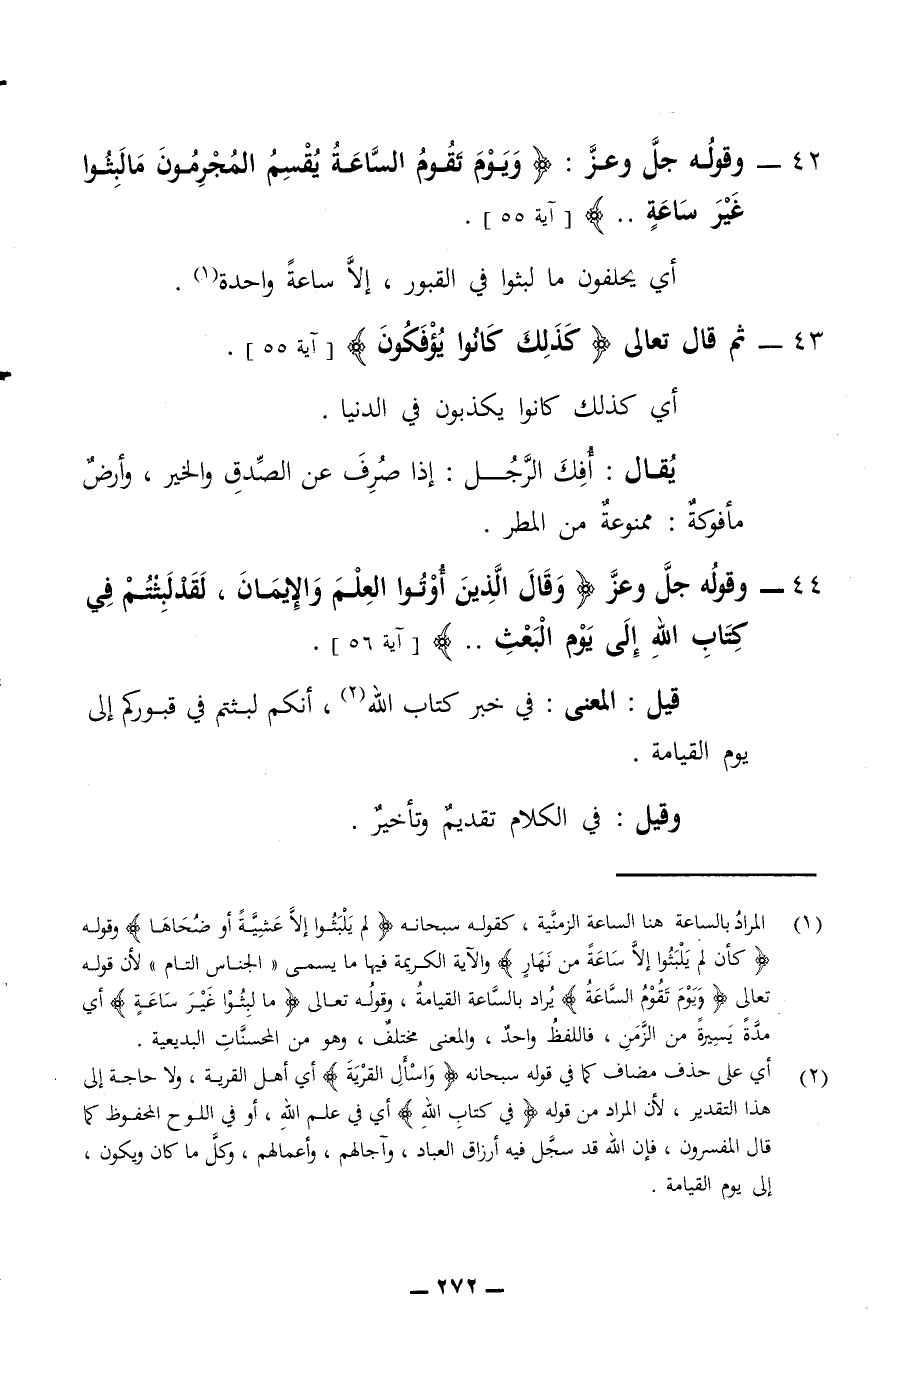 ٤٢ ــ وقولُه جلَّ وعزَّ : ﴿ وَيَوْمَ تَقُومُ السَّاعَةُ يُقْسِمُ المُجْرِمُونَ مَالَبِثُوا
غَيْرَ سَاعَةٍ .. ﴾ [ آية ٥٥ ] .
أي يحلفون ما لبثوا في القبور ، إلاَّ ساعةً واحدة(١) .
٤٣ ــ ثم قال تعالى ﴿ كَذَلِكَ كَانُوا يُؤْفَكُونَ ﴾ [ آية ٥٥ ] .
أي كذلك كانوا يكذبون في الدنيا .
يُقال : أُفِكَ الرَّجُل : إذا صُرِفَ عن الصِّدقِ والخير ، وأرضٌ
مأفوكةٌ : ممنوعةٌ من المطر .
٤٤ ــ وقولُه جلَّ وعزَّ ﴿ وَقَالَ الَّذِينَ أُوْتُوا العِلْمَ وَالإِيمَانَ ، لَقَدْ لَبِثْتُمْ فِي
كِتَابِ اللهِ إِلَى يَوْمِ الْبَعْثِ .. ﴾ [ آية ٥٦ ] .
قيل : المعنى : في خبر كتاب الله(٢) ، أنكم لبثتم في قبوركم إلى
يوم القيامة .
وقيل : في الكلام تقديمٌ وتأخيرٌ .
(١) المرادُ بالساعة هنا الساعة الزمنَّية ، كقوله سبحانه ﴿ لم يَلْبَثُوا إلاَّ عَشِيَّةً أو ضُحَاهَا ﴾ وقوله
﴿ كأن لم يَلْبَثُوا إلاَّ سَاعَةً من نَهَارٍ ﴾ والآية الكريمة فيها ما يسمى « الجناس التام » لأن قوله
تعالى ﴿ وَيَوْمَ تَقُوْمُ السَّاعَةُ ﴾ يُراد بالسَّاعة القيامةُ ، وقولُه تعالى ﴿ ما لبِثُوْا غَيْرَ سَاعَةٍ ﴾ أي
مدَّةً يَسِيرةً من الزَّمَنِ ، فاللفظُ واحدٌ ، والمعنى مختلفٌ ، وهو من المحسنَّاتِ البديعية .
(٢) أي على حذف مضاف كما في قوله سبحانه ﴿ وَاسْأَلِ القَرْيَةَ ﴾ أي أهل القرية ، ولا حاجة إلى
هذا التقدير ، لأن المراد من قوله ﴿ في كتابِ اللهِ ﴾ أي في علم اللهِ ، أو في اللوح المحفوظ كما
قال المفسرون ، فإن الله قد سجَّل فيه أرزاق العباد ، وآجالهم ، وأعمالهم ، وكلَّ ما كان ويكون ،
إلى يوم القيامة .
ــ ٢٧٢ ــ